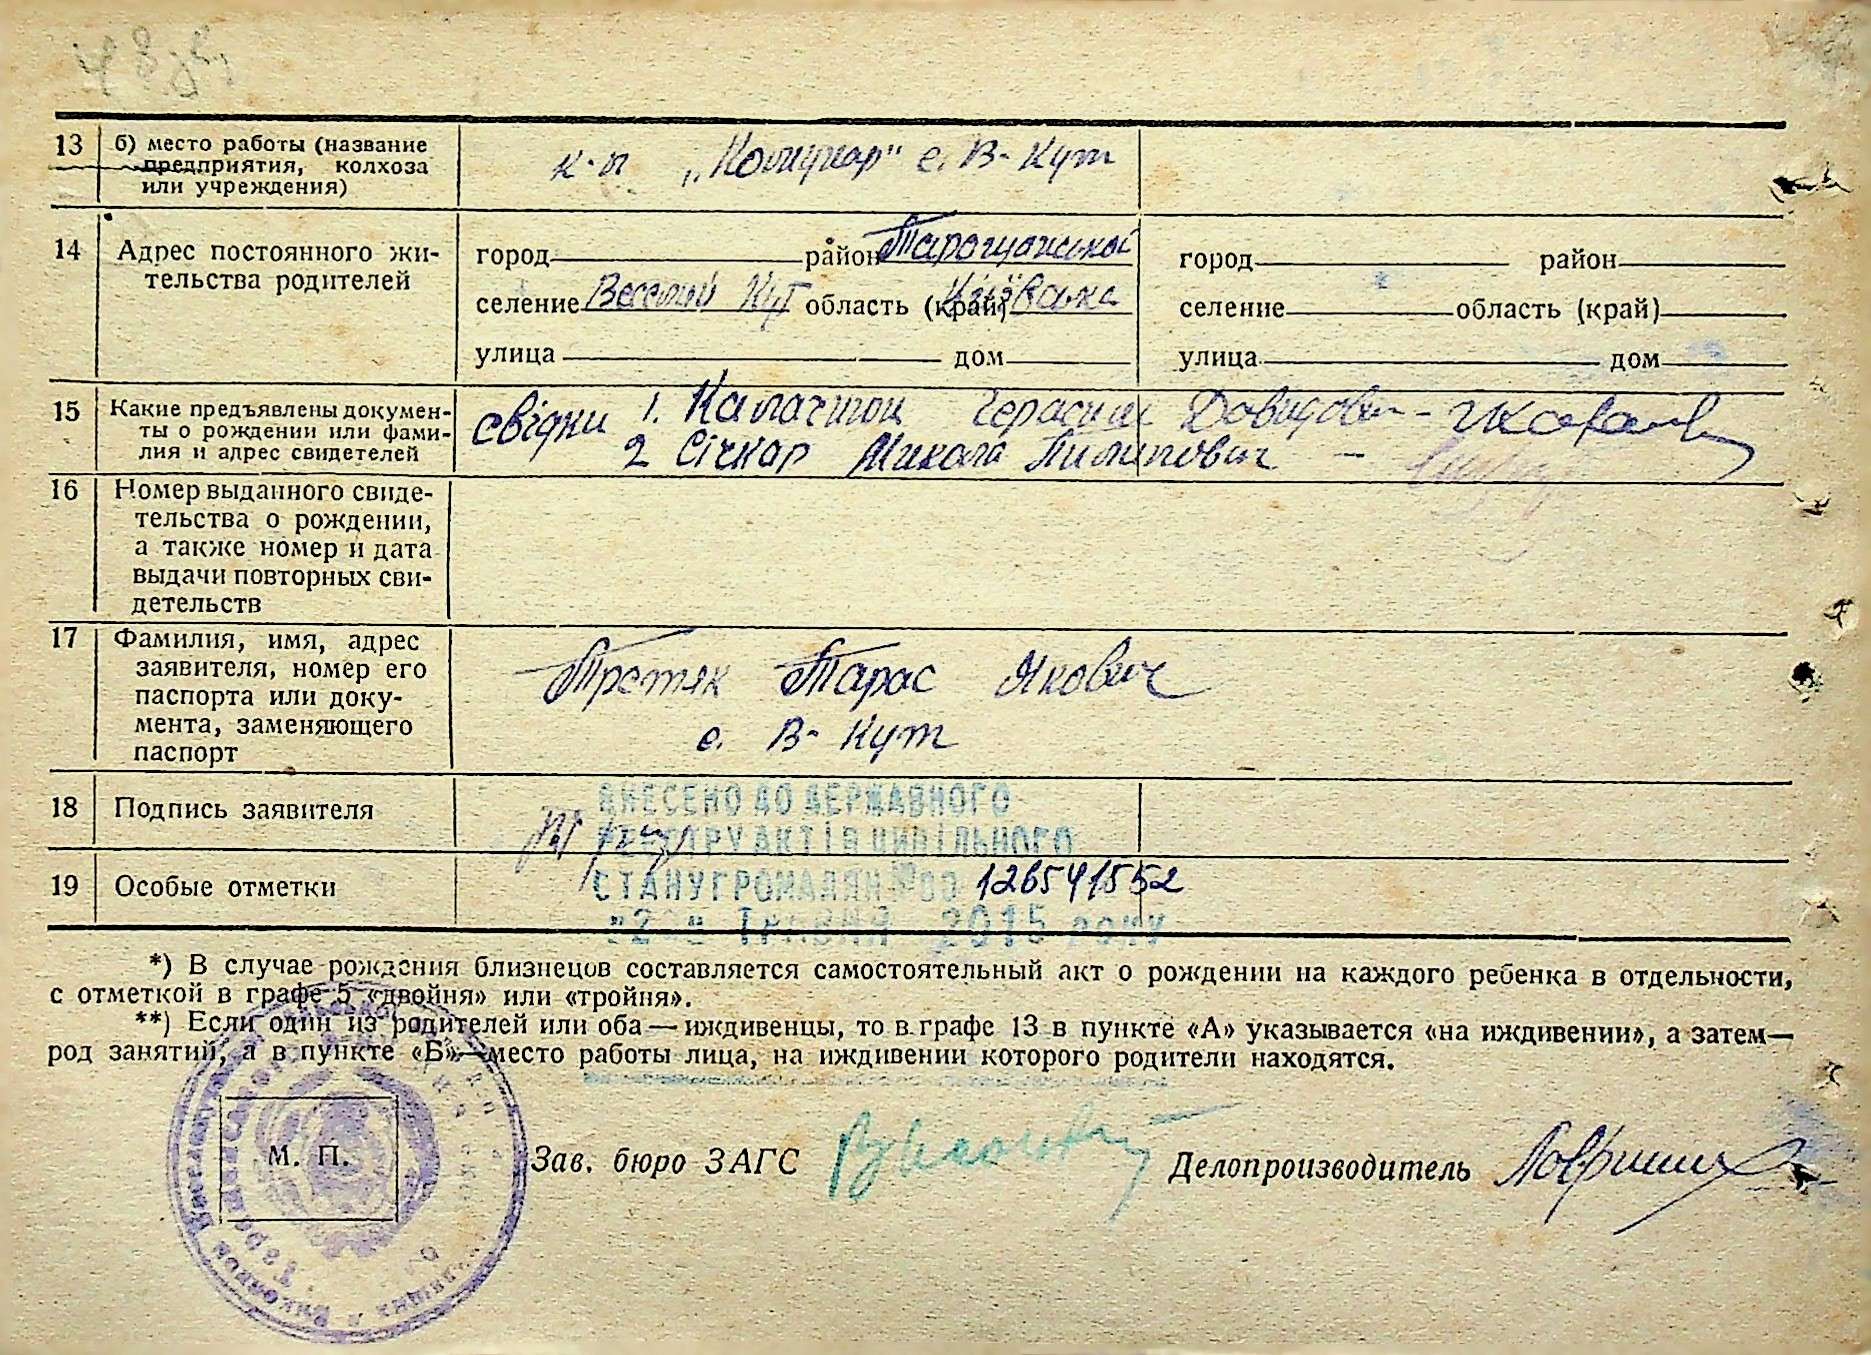 13 б) место работы (название
предприятия, колхоза
или учреждения)
к-п „Комунар" с. В-Кут
14 Адрес постоянного жи-
тельства родителей
город район Таращанський
селение Веселий Кут область (край) Київська
улица дом
город район
селение область (край)
улица дом
15 Какие предъявлены докумен-
ты о рождении или фами-
лия и адрес свидетелей
свідки 1. Герасим Давидович -
2 Січкар Микола Пилипович -
16 Номер выданного свиде-
тельства о рождении,
а также номер и дата
выдачи повторных сви-
детельств
17 Фамилия, имя, адрес
заявителя, номер его
паспорта или доку-
мента, заменяющего
паспорт
Третяк Тарас Якович
с. В-Кут
18 Подпись заявителя
ВНЕСЕНО ДО ДЕРЖАВНОГО
РЕЄСТРУ АКТІВ ЦИВІЛЬНОГО
19 Особые отметки
СТАНУ ГРОМАДЯН № 00 126541552
ТРАВНЯ 2015 РОКУ
*) В случае рождения близнецов составляется самостоятельный акт о рождении на каждого ребенка в отдельности,
с отметкой в графе 5 «двойня» или «тройня».
**) Если один из родителей или оба — иждивенцы, то в графе 13 в пункте «А» указывается «на иждивении», а затем —
род занятий, а в пункте «Б» — место работы лица, на иждивении которого родители находятся.
М. П.
Зав. бюро ЗАГС
Делопроизводитель